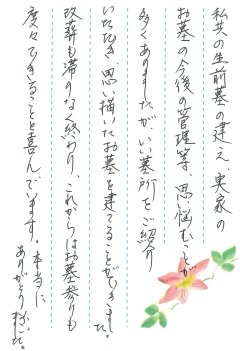 私共の生前墓の建立、実家の
お墓の今後の管理等、思い悩むことが
多くありましたが、いい墓所をご紹介
いただき、思い描いたお墓を建てることができました。
改葬も滞りなく終わり、これからはお墓参りも
度々できることと喜んでいます。本当に
ありがとうございました。